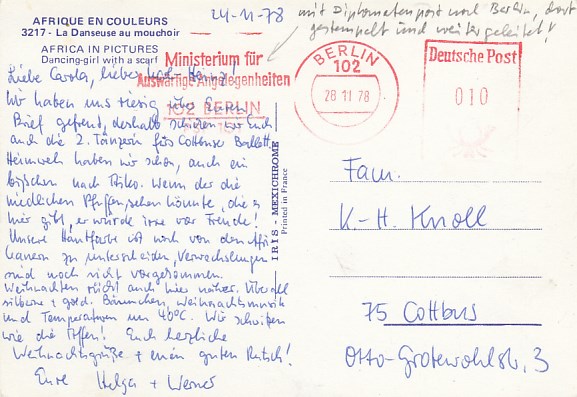 AFRIQUE EN COULEURS
3217 - La Danseuse au mouchoir
AFRICA IN PICTURES
Dancing-girl with a scarf
24-11-78
mit Diplomatenpost nach Berlin, dort
gestempelt und weitergeleitet!
Ministerium für
Auswärtige Angelegenheiten
102 BERLIN
BERLIN
102
28 11 78
Deutsche Post
010
Liebe Carola, lieber Karl-Heinz!
Wir haben uns riesig über Euren
Brief gefreut, deshalb schicken wir Euch
auch die 2. Tänzerin fürs Cottbuser Ballett.
Heimweh haben wir schon, auch ein
bißchen nach Bsiko. Wenn der die
niedlichen Pfiffen sehen könnte, die es
hier gibt, er würde irre vor Freude!
Unsere Hautfarbe ist noch von den Afri-
kanern zu unterscheiden, Verwechslungen
sind noch nicht vorgekommen.
Weihnachten rückt auch hier näher. Überall
silberne + gold. Bäumchen, Weihnachtsmusik
und Temperaturen um 40°C. Wir schwitzen
wie die Affen! Euch herzliche
Weihnachtsgrüße + einen guten Rutsch!
Eure Helga + Werner
IRIS - MEXICHROME
Printed in France
Fam.
K.-H. Knoll
75 Cottbus
Otto-Grotewohlstr. 3